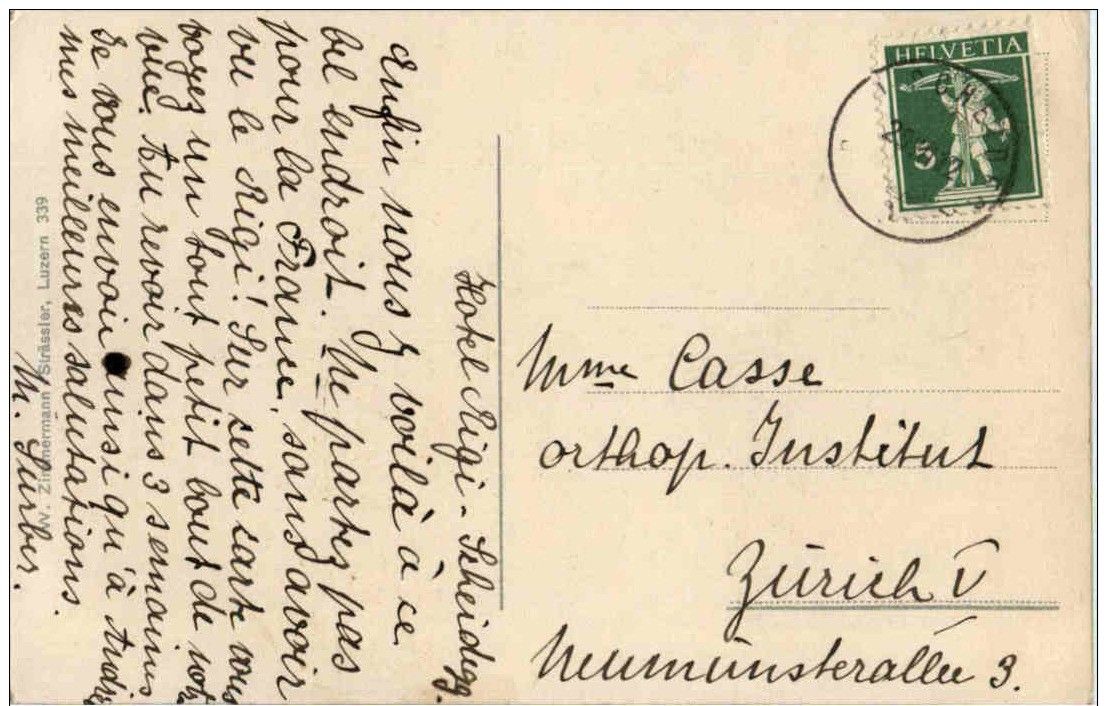 Hotel Rigi-Scheidegg.
Enfin nous y voilà à ce
bel endroit. Ne partez pas
pour la France, sans avoir
vu le Rigi! Sur cette carte vous
voyez un tout petit bout de
vue. Au revoir dans 3 semaines
Je vous envoie ainsi qu'à
mes meilleures salutations.
M. Surber.
W. Zimmermann Strässler, Luzern 339
HELVETIA
5
Mme Casse
orthop. Institut
Zürich V
Neumünsterallee 3.